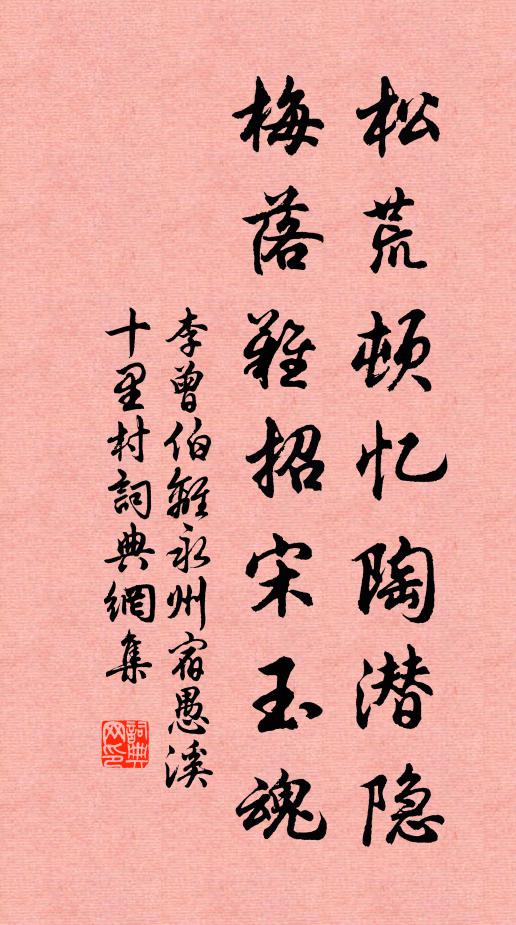 松荒顿忆陶潜隐
梅落难招宋玉魂
李曾伯離永州宿愚溪
十里村詞典網集
詞典
网印